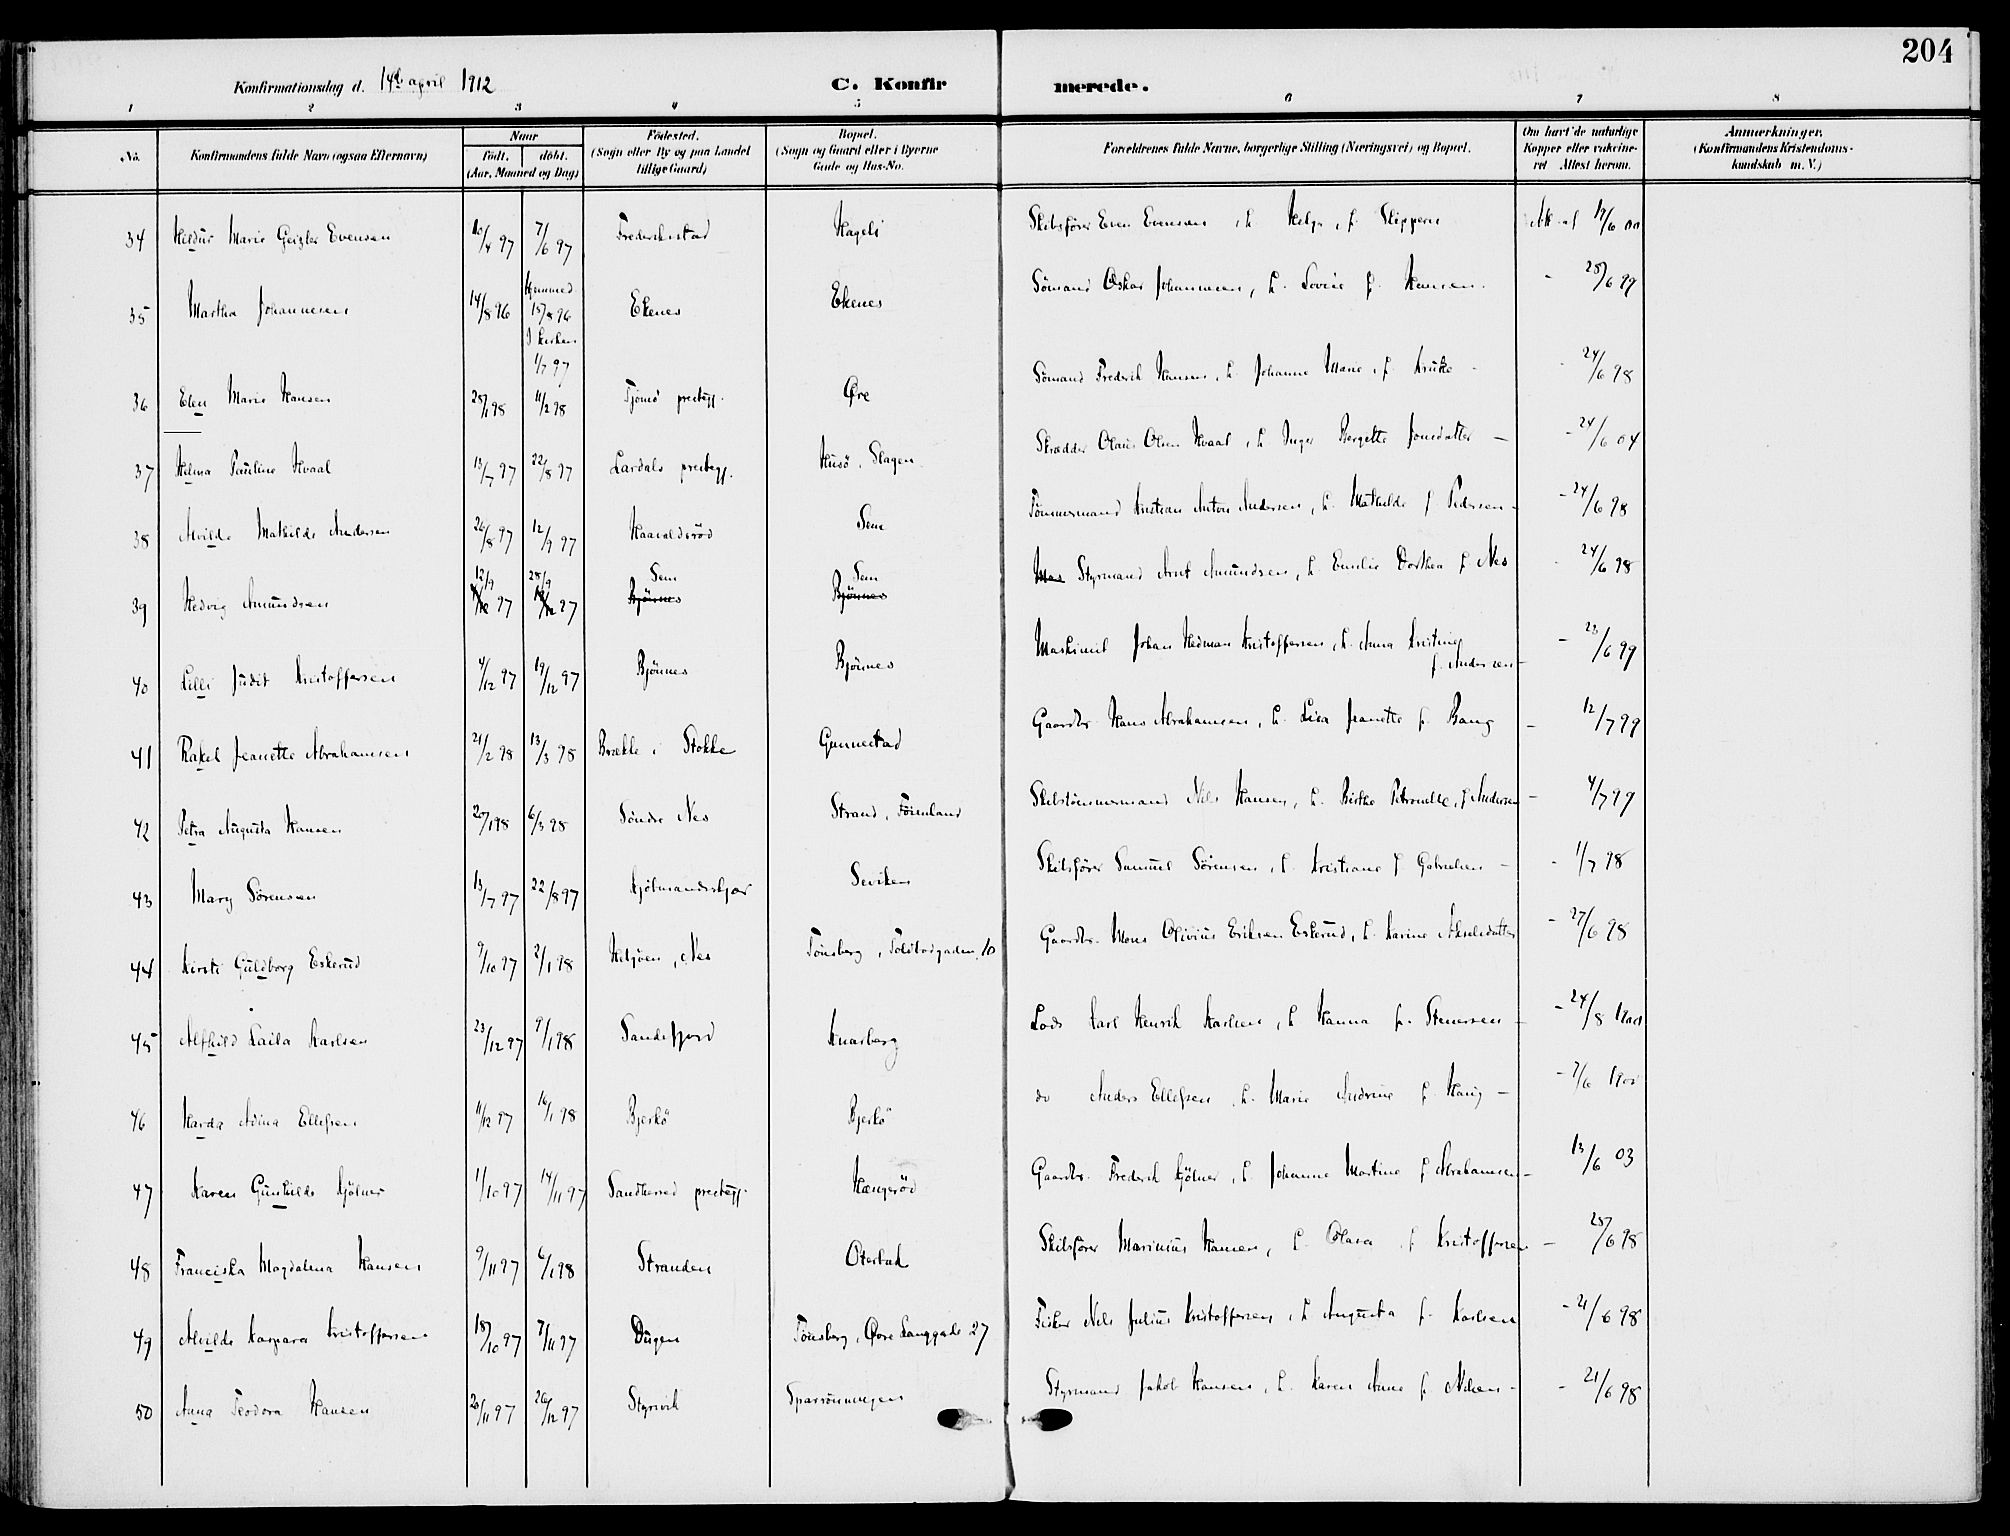 204
Konfirmationsdag d. 14de april 1912 C. Konfirmerede.
1 2 3 4 5 6 7 8
No. Konfirmandens fulde Navn (ogsaa Efternavn) Naar født. døbt. (Aar, Maaned og Dag) Fødested. (Sogn eller By og paa Landet tillige Gaard) Bopæl. (Sogn og Gaard eller i Byerne Gade og Hus-No. Forældrenes fulde Navne, borgerlige Stilling (Næringsvei) og Bopæl. Om havt de naturlige Kopper eller vakcineret Attest herom. Anmærkninger. (Konfirmandens Kristendomskundskab m. V.)
34 Hildur Marie Geizler Evensen 10/4 97 7/6 97 Frederikstad Hageli Skibsfører Even Evensen, h. Helga, f. Skippern Att af 19/6
35 Martha Johannesen 14/8 96 Hjemmed. 15/8 96 I kirken 1/7 97 Ekenes Ekenes Sømand Oskar Johannesen, h. Lovise f. Hansen. - 28/6 99
36 Elen Marie Hansen 28/1 98 11/2 98 Tjømø prestegj. Øre Sømand Frederik Hansen, h. Johanne Marie, f. Kruke - 24/6 98
37 Helma Pauline Hvaal 13/7 97 22/8 97 Lardals prestegj. Husø, Slagen Skrædder Olaus Olsen Hvaal, h. Inger Bergette Jonsdatter - - 24/6 04
38 Alvilde Mathilde Andersen 26/8 97 12/9 97 Haavaldsrød Sem Tømmermand Kristian Anton Andersen, h. Mathilde f Pedersen - - 24/6 98
39 Hedvig Amundsen 12/9 97 28/9 97 Sem Bjønnes Sem Bjønnes Mas Styrmand Arnt Amundsen, h. Emilie Dorthea f Nes - 24/6 98
40 Lilli Judit Kristoffersen 4/12 97 19/12 97 Bjønnes Bjønnes Maskinist Johan Hedman Kristoffersen, h. Anna Kristine f. Andersen - - 23/6 99
41 Rakel Jeanette Abrahamsen 21/2 98 13/3 98 Brække i Stokke Gunnestad Gaardbr. Hans Abrahamsen, h. Lisa Jeanette f. Bang - 12/7 99
42 Petra Augusta Hansen 20/1 98 6/3 98 Søndre Nes Strand, Føienland Skibstømmermand Nils Hansen, h. Birthe Petronelle, f Andersen - 4/7 99
43 Mary Sørensen 13/7 97 22/8 97 Kjølmandsskjær Seviken Skibsfører Samuel Sørensen, h. Kristiane f Gabrielsen - - 1/7 98
44 Kirsti Guldborg Eskerud 9/10 97 2/1 98 Helgøen, Nes Tønsberg, Toldbodgaden 10 Gaardbr. Mons Olivius Eriksen Eskerud, h. Karine Akselsdatter - 27/6 98
45 Alfhild Laila Karlsen 23/12 97 9/1 98 Sandefjord Knarberg Lods Karl Henrik Karlsen, h Hanna f. Stenersen - - 24/8
46 Harda Adina Ellefsen 11/12 97 16/1 98 Bjerkø Bjerkø do Anders Ellefsen h. Marie Andrine f. Haug - - 7/6
47 Karen Gunhilde Kjølner 1/10 97 14/11 97 Sandherred prestegj. Hængsrød Gaardbr. Frederik Kjølner, h. Johanne Martine f Abrahamsen - 13/6 03
48 Franciska Magdalena Hansen 9/11 97 6/1 98 Stranden Oterbæk Skibsfører Marinius Hansen, h. Olava f Kristoffersen - 28/6 98
49 Alvilde Kaspara Kristoffersen 18/10 97 7/11 97 Dugen Tønsberg, Øvre Langgade 27 Fisker Nils Julius Kristoffersen, h Augusta f. Karlsen - 21/6 98
50 Anna Teodora Hansen 20/11 97 26/12 97 Styrsvik Styrmand Jakob Hansen, h. Karen Anna f Nilsen - - 21/6 98